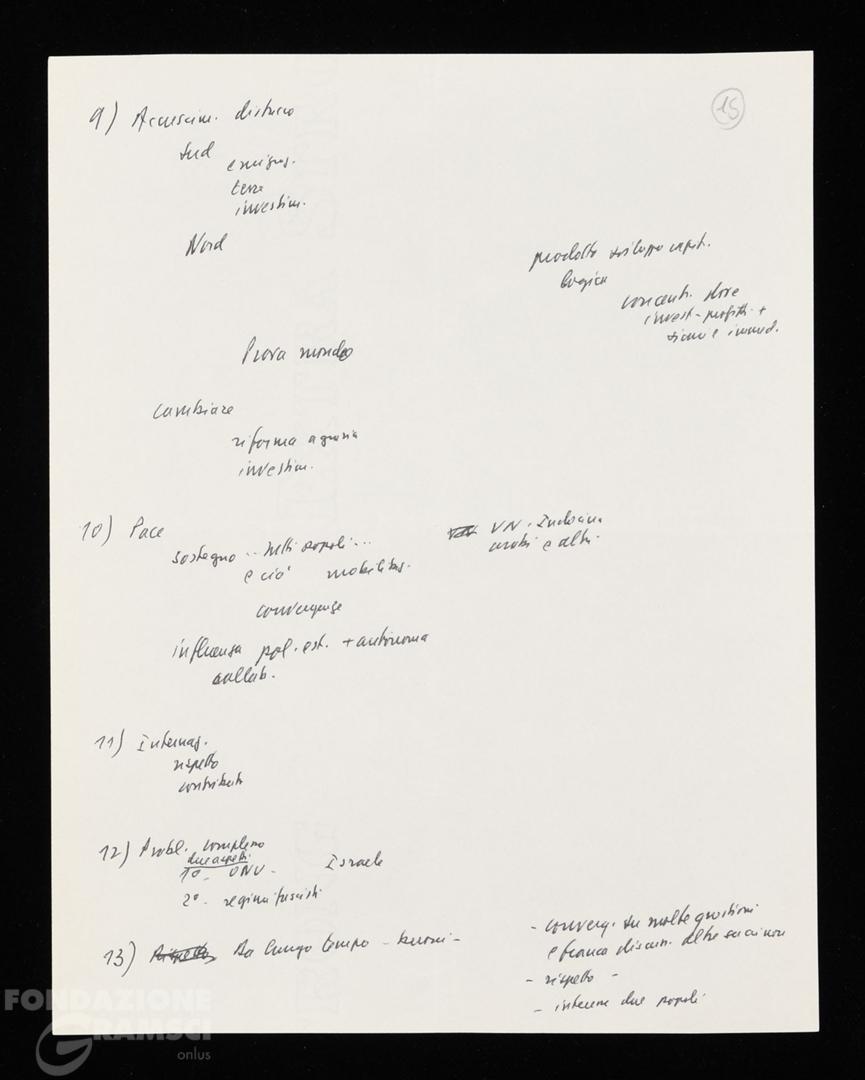 15
9) Accrescim. distacco
Sud
emigraz.
terre
investim.
Nord
prodotto sviluppo capit.
logica
concentr. dove
invest - profitti +
sicuri e immed.
Prova mondo
cambiare
riforma agraria
investim.
10) Pace
sostegno .. tutti popoli ...
e ciò mobilitaz.
VN. Indocina
arabi e altri.
convergenze
influenza pol. est. + autonoma
collab.
11) Internaz.
rispetto
contributi
12) Probl. complesso
due aspetti
1º - ONU - Israele
2º - regimi fascisti
13) Da lungo tempo - buoni -
- converg. su molte questioni
e franca discuss. altre su cui non
- rispetto -
- interesse due popoli
FONDAZIONE
GRAMSCI
onlus